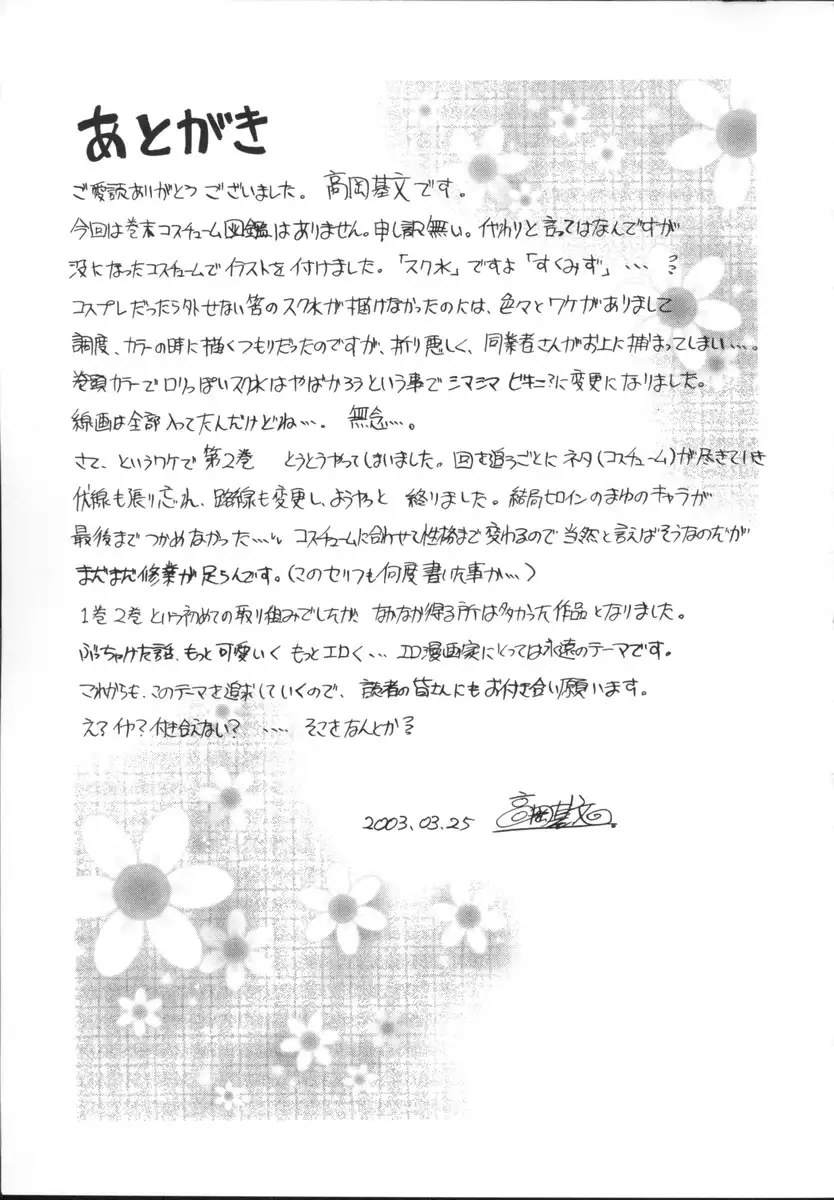 あとがき
ご愛読ありがとうございました。高岡基文です。
今回は巻末コスチューム図鑑はありません。申し訳無い。代わりと言ってはなんですが
没になったコスチュームでイラストを付けました。「スク水」ですよ「すくみず」…?
コスプレだったら外せない筈のスク水が描けなかったのには、色々とワケがありまして
調度、カラーの時に描くつもりだったのですが、折り悪しく、同業者さんがお上に捕まってしまい…。
巻頭カラーでロリっぽいスク水はやばかろうという事でシマシマビキニ?に変更になりました。
線画は全部入ってたんだけどね…。無念…。
さて、というワケで第2巻 とうとうやってしまいました。回を追うごとにネタ(コスチューム)が尽きていき
伏線も張り忘れ、路線も変更し、ようやっと終りました。結局ヒロインのまゆのキャラが
最後までつかめなかった… コスチュームに合わせて性格まで変わるので当然と言えばそうなのだが
まだまだ修業が足らんです。(このセリフも何度書いた事か…)
1巻2巻という初めての取り組みでしたが、なかなか得る所は多かった作品となりました。
ぶっちゃけた話、もっと可愛いく もっとエロく… エロ漫画家にとっては永遠のテーマです。
これからも、このテーマを追求していくので、読者の皆さんにもお付き合い願います。
え?イヤ?付き合えない? …. そこをなんとか?
2003.03.25 高岡基文